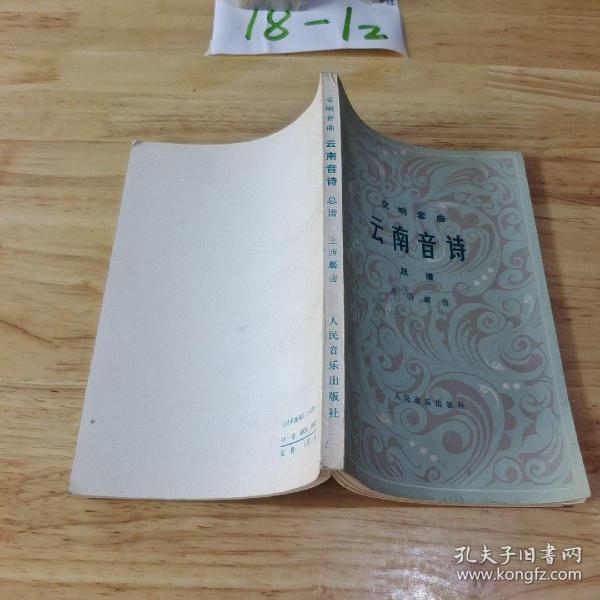 18-12
交响套曲
云南音诗
总谱
王西麟曲
人民音乐出版社
交响套曲
云南音诗
总谱
王西麟曲
人民音乐出版社
书号
定价
孔夫子旧书网
www.kongfz.com